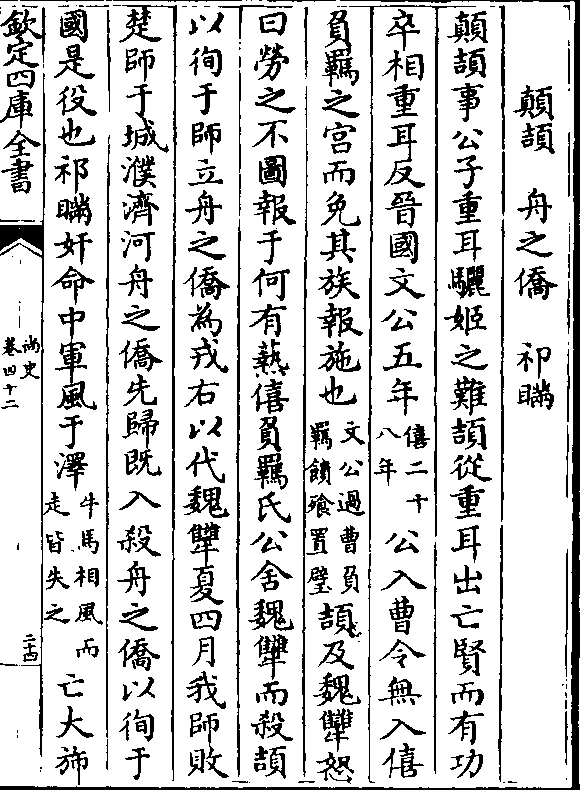 顛頡　舟之僑　祁瞞
顛頡事公子重耳驪姬之難頡從重耳出亡賢而有功
卒相重耳反晉國文公五年僖二十八年公入曹令無入僖
負羈之宮而免其族報施也文公過曹負羈饋飱置璧頡及魏犨怒
曰勞之不圖報于何有爇僖負羈氏公舍魏犨而殺頡
以徇于師立舟之僑為戎右以代魏犨夏四月我師敗
楚師于城濮濟河舟之僑先歸既入殺舟之僑以徇于
國是役也祁瞞奸命中軍風于澤牛馬相風而走皆失之亡大斾
欽定四庫全書
尚史
卷四十二
二十四